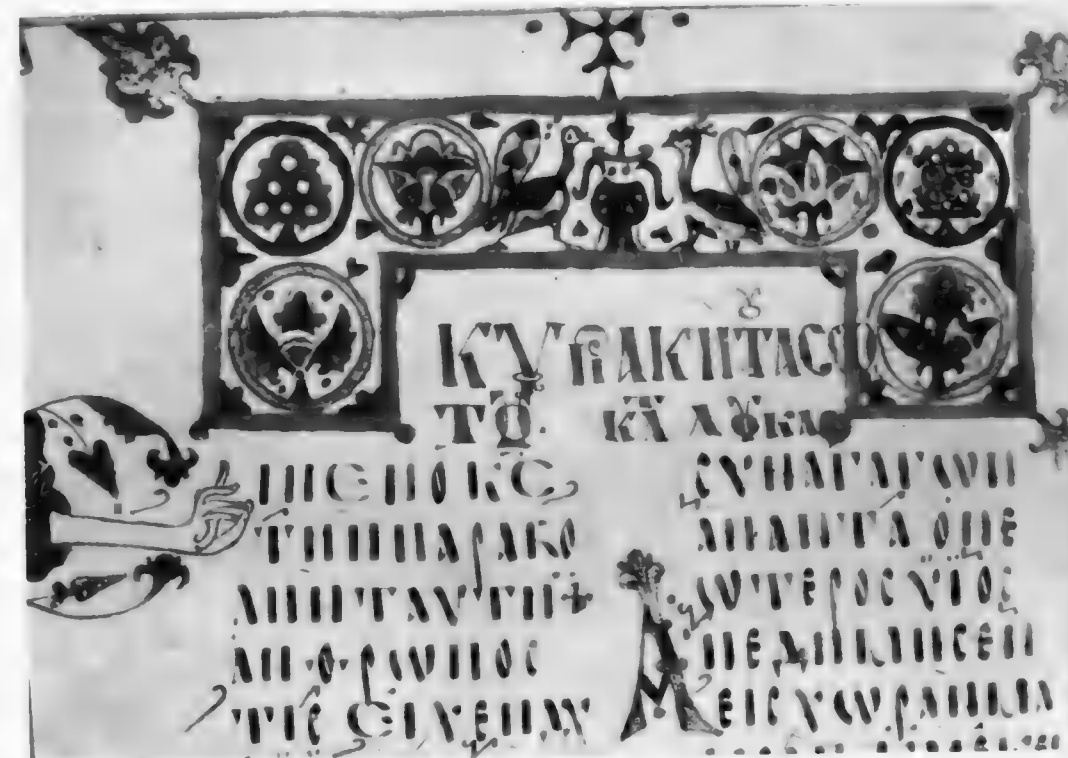 ΚΥΡΙΑΚΗ ΤȢ ΑϹΩ
ΤȢ ΚΑΤ ΛȢΚΑΝ
ΕΙΠΕΝ Ο ΚϹ
ΤΗΝ ΠΑΡΑΒΟ
ΛΗΝ ΤΑΥΤΗΝ+
ΑΝΘΡΩΠΟϹ
ΤΙϹ ΕΙΧΕΝ ΔΥ
ϹΥΝΑΓΑΓΩΝ
ΑΠΑΝΤΑ Ο ΝΕ
ΩΤΕΡΟϹ ΥΙΟϹ
ΑΠΕΔΗΜΗϹΕΝ
ΕΙϹ ΧΩΡΑΝ ΜΑ